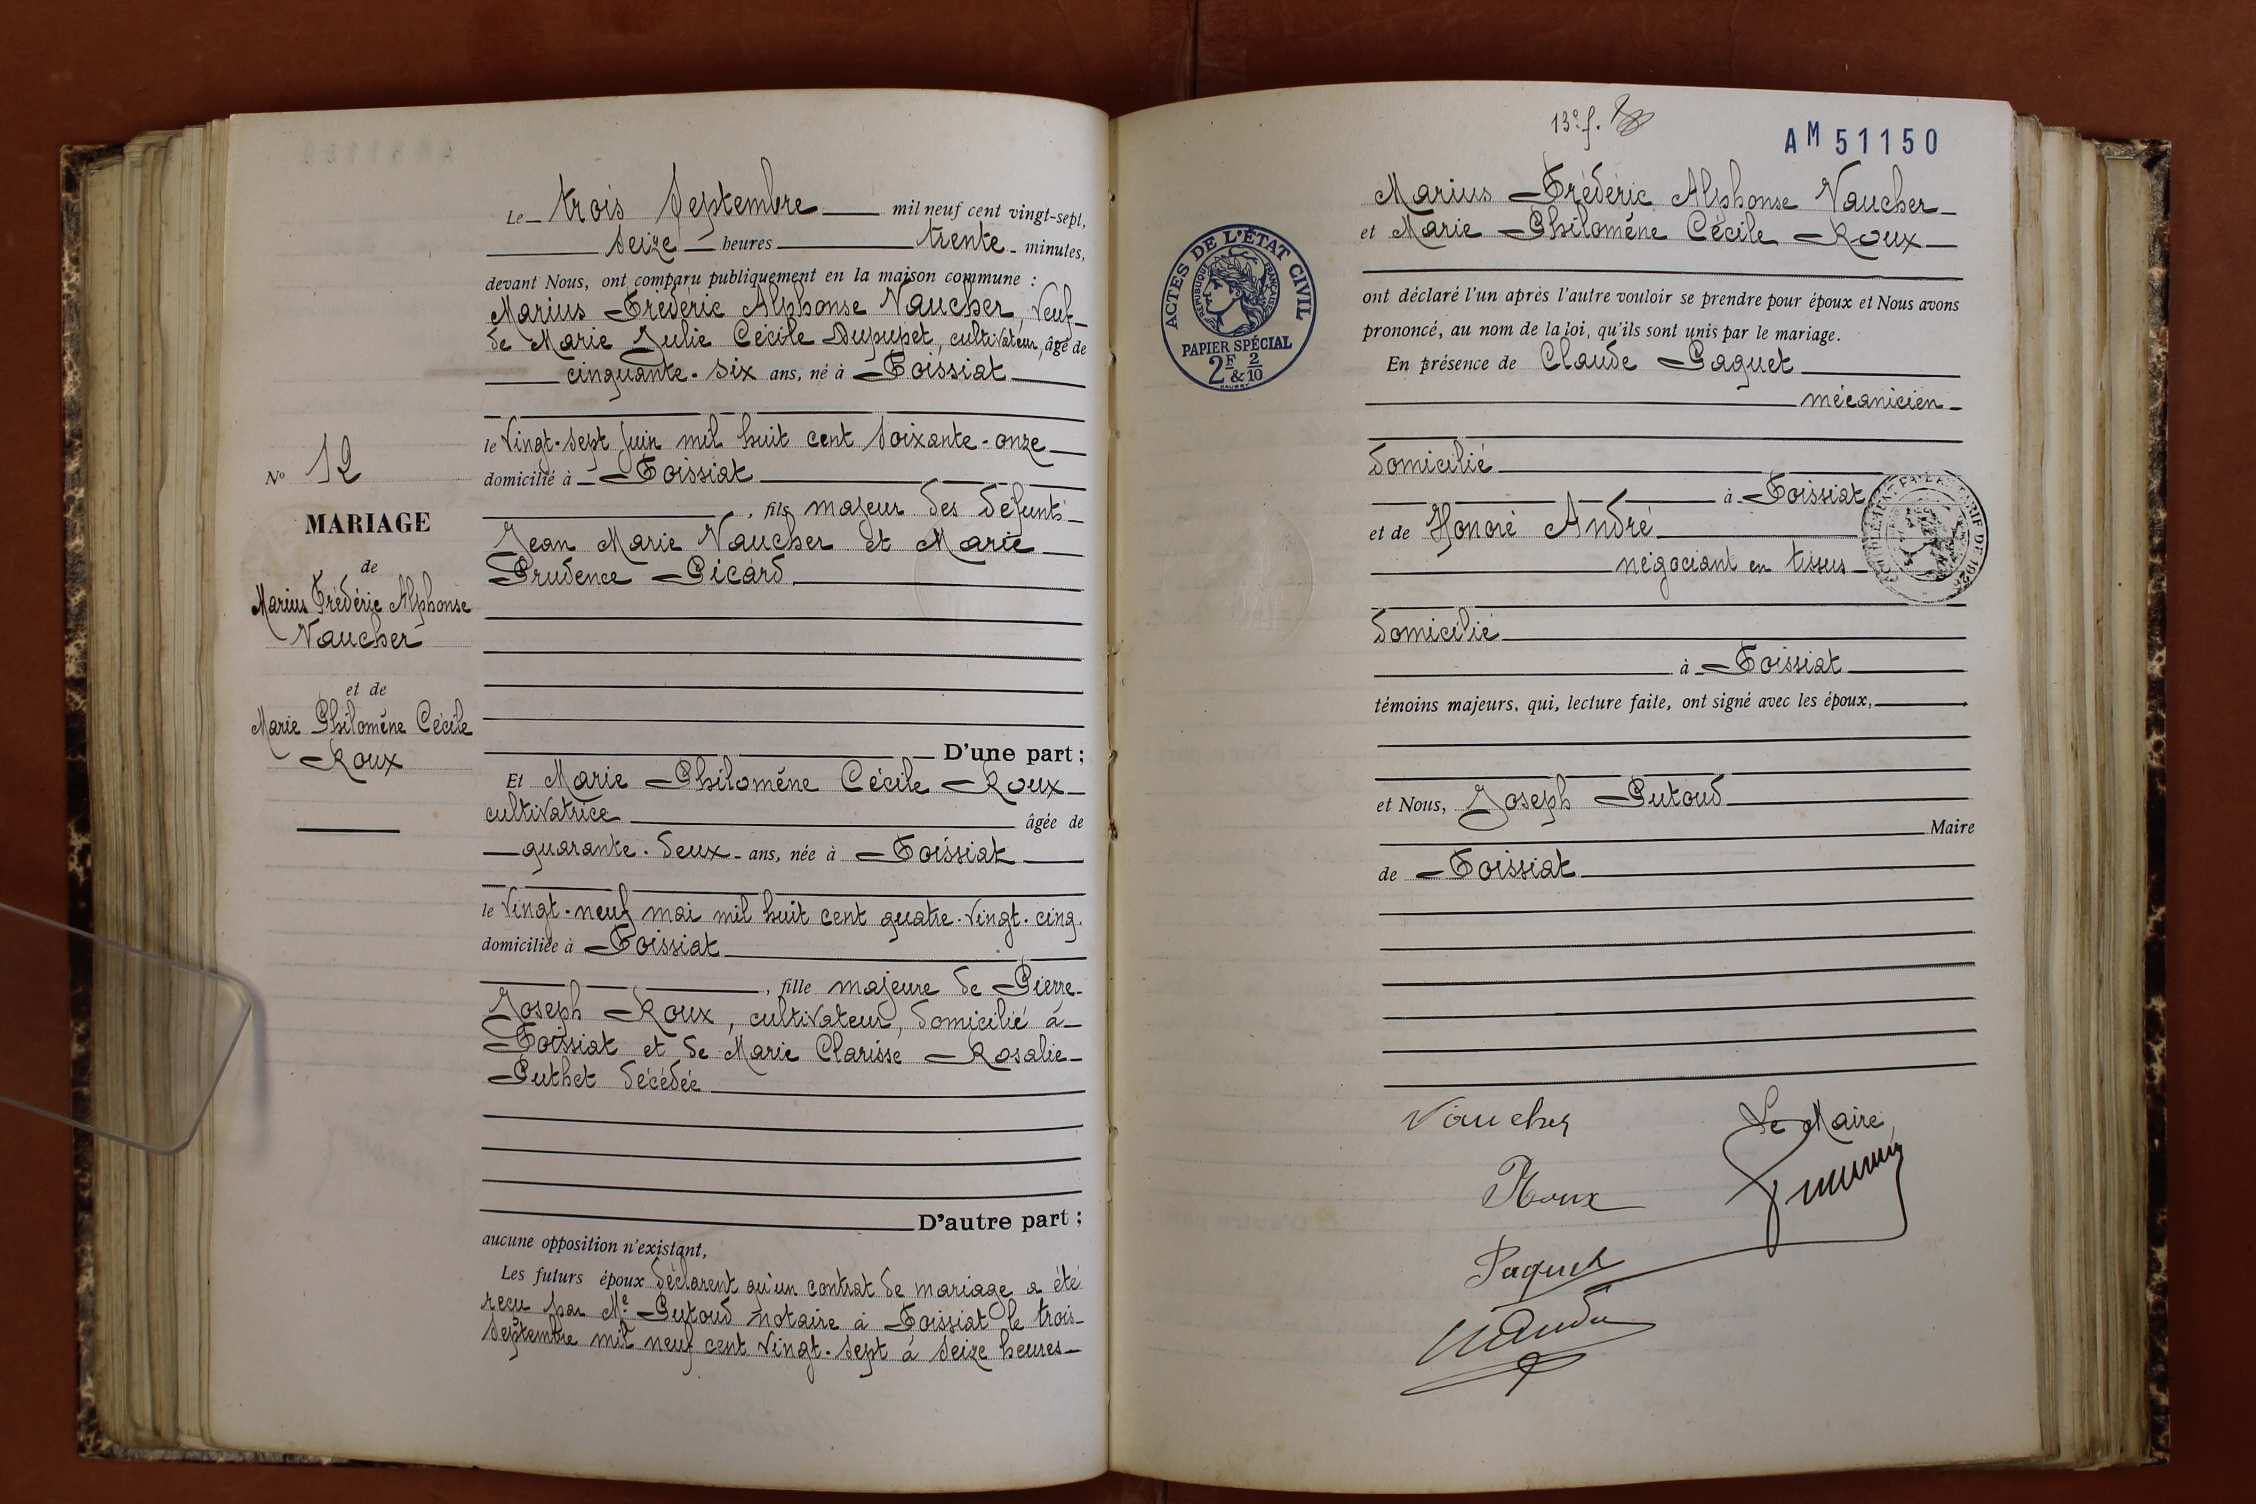 Le trois Septembre mil neuf cent vingt-sept,
seize heures trente minutes,
devant Nous, ont comparu publiquement en la maison commune :
Marius Frédéric Alphonse Vaucher, Veuf
de Marie Julie Cécile Dupupet, cultivateur, âgé de
cinquante-six ans, né à Foissiat
le vingt-sept juin mil huit cent soixante-onze
domicilié à Foissiat
, fils majeur des défunts
Jean Marie Vaucher et Marie
Prudence Picard
D'une part ;
Et Marie Philomène Cécile Roux
cultivatrice âgée de
quarante-deux ans, née à Foissiat
le vingt-neuf mai mil huit cent quatre-vingt-cinq
domiciliée à Foissiat
, fille majeure de Pierre
Joseph Roux, cultivateur, domicilié à
Foissiat et de Marie Clarisse Rosalie
Puthet décédée
D'autre part ;
aucune opposition n'existant,
Les futurs époux déclarent qu'un contrat de mariage a été
reçu par Me Putoud notaire à Foissiat le trois
septembre mil neuf cent vingt-sept à seize heures
No 12
MARIAGE
de
Marius Frédéric Alphonse
Vaucher
et de
Marie Philomène Cécile
Roux
13e f.
AM 51150
ACTES DE L'ÉTAT CIVIL
RÉPUBLIQUE FRANÇAISE
PAPIER SPÉCIAL
2F & 2/10
Marius Frédéric Alphonse Vaucher
et Marie Philomène Cécile Roux
ont déclaré l'un après l'autre vouloir se prendre pour époux et Nous avons
prononcé, au nom de la loi, qu'ils sont unis par le mariage.
En présence de Claude Paquet
mécanicien
domicilié
à Foissiat
et de Honoré André
négociant en tissus
domicilié
à Foissiat
témoins majeurs, qui, lecture faite, ont signé avec les époux,
et Nous, Joseph Putoud
Maire
de Foissiat
Vaucher
Le Maire,
Roux
Paquet